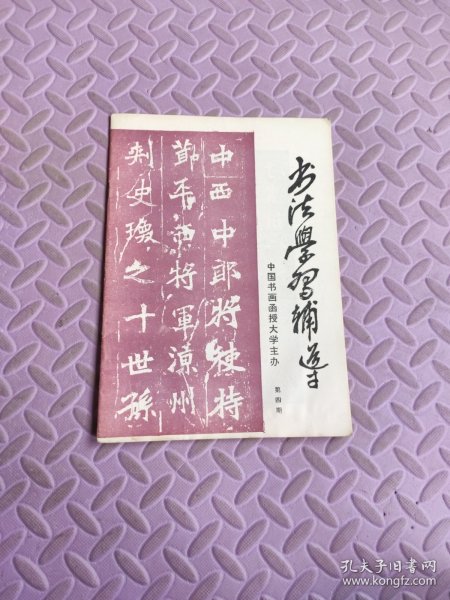 书法学习辅导
中国书画函授大学主办
第四期
中西中郎将使持
节平东将軍凉州
刺史瓊之十世孫
孔夫子旧书网
www.kongfz.com